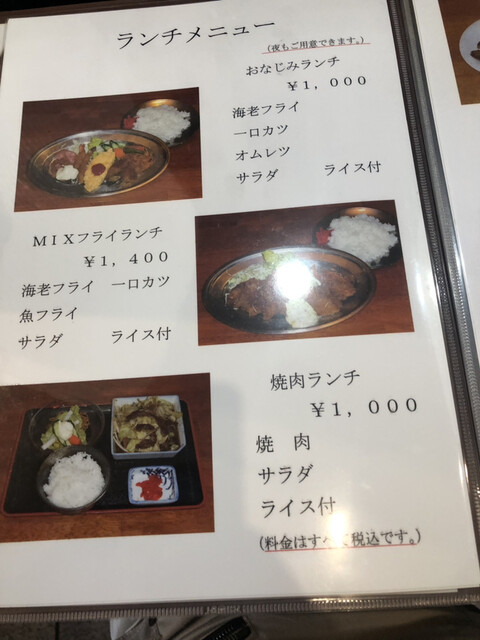 ランチメニュー
(夜もご用意できます。)
おなじみランチ
￥１，０００
海老フライ
一口カツ
オムレツ
サラダ ライス付
ＭＩＸフライランチ
￥１，４００
海老フライ 一口カツ
魚フライ
サラダ ライス付
焼肉ランチ
￥１，０００
焼 肉
サラダ
ライス付
(料金はすべて税込です。)